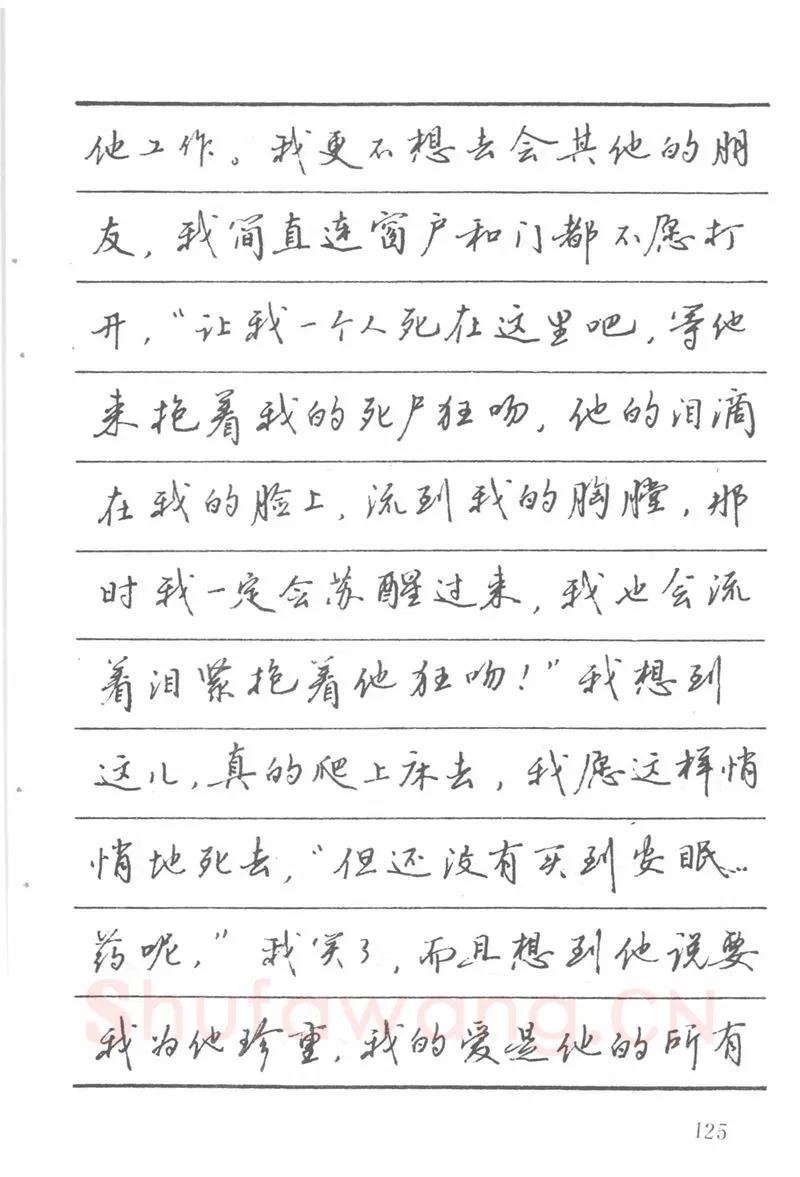 他工作。我更不想去会其他的朋
友，我简直连窗户和门都不愿打
开，“让我一个人死在这里吧，等他
来抱着我的死尸狂吻，他的泪滴
在我的脸上，流到我的胸膛，那
时我一定会苏醒过来，我也会流
着泪紧抱着他狂吻！”我想到
这儿，真的爬上床去，我愿这样悄
悄地死去，“但还没有买到安眠…
药呢，”我笑了，而且想到他说要
我为他珍重，我的爱是他的所有
Shufawang.CN
125